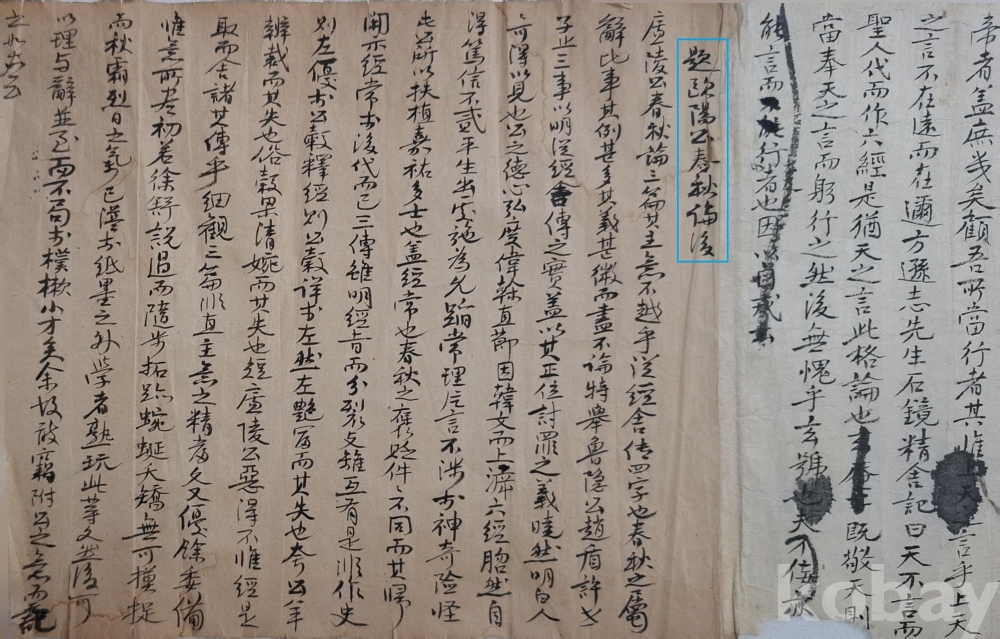 帝者盖無幾矣顧吾所當行者其惟上天之言乎上天
之言不在遠而在邇方遜志先生石鏡精舍記曰天不言而
聖人代而作六經是猶天之言此格論也既敬天則
當奉天之言而躬行之然後無愧乎玄號
能言而行者也因以自
題歐陽公春秋論後
廬陵公春秋論三篇其主意不越乎從經舍传四字也春秋之屬
辭比事其例甚多其義甚微而盡不論特舉魯隐公趙盾許世
子止三事以明從經舍傳之實盖以其正位討罪之義曉然明白人
可得以見也公之德心弘度偉幹直節因韓文而上泝六經脗然自
得篤信不貳平生出处施為允蹈常理片言不涉於神奇险怪
此公所以扶植嘉祐多士也盖經常也春秋之舊貶件不同而其歸
開示經常於後代而已三傳雖明經旨而分裂支離互有是非作史
則左優於公穀釋經則公穀詳於左然左艶富而其失也夸公羊
辯裁而其失也俗穀梁清婉而其失也短廬陵公惡得不惟經是
取而舍諸其傳乎細觀三篇順直主意之精高文又優餘委備
惟意所尽初若徐舒説過而隨步拓跡蜿蜒夭矯無可撞捉
而秋霜烈日之氣已溢於紙墨之外學者熟玩此等文然後可
以理与辭并至而不局於樸樕小才矣余故敢竊附公之意而記
之如右云
kobay